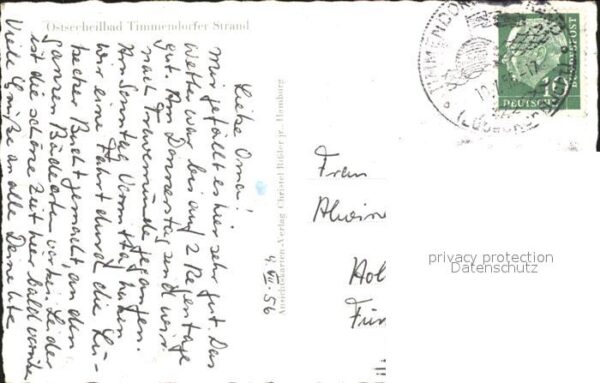 Ostseeheilbad Timmendorfer Strand
4. VII. 56
Liebe Oma!
Mir gefällt es hier sehr gut. Das
Wetter war bis auf 2 Regentage
gut. Am Donnerstag sind wir
nach Travemünde gegangen.
Am Sonntag Vormittag haben
wir eine Fahrt durch die Lü-
becker Bucht gemacht, an den
ganzen Badeorten vorbei. Leider
ist die schöne Zeit hier bald vorüber
Viele Grüße an alle Deine Ute
Ansichtskarten-Verlag Christel Bidler jr., Hamburg
TIMMENDORFER STRAND
(LÜBECKER BUCHT)
DEUTSCHE BUNDESPOST
10
Frau
Alwine
Hol
Für
privacy protection
Datenschutz